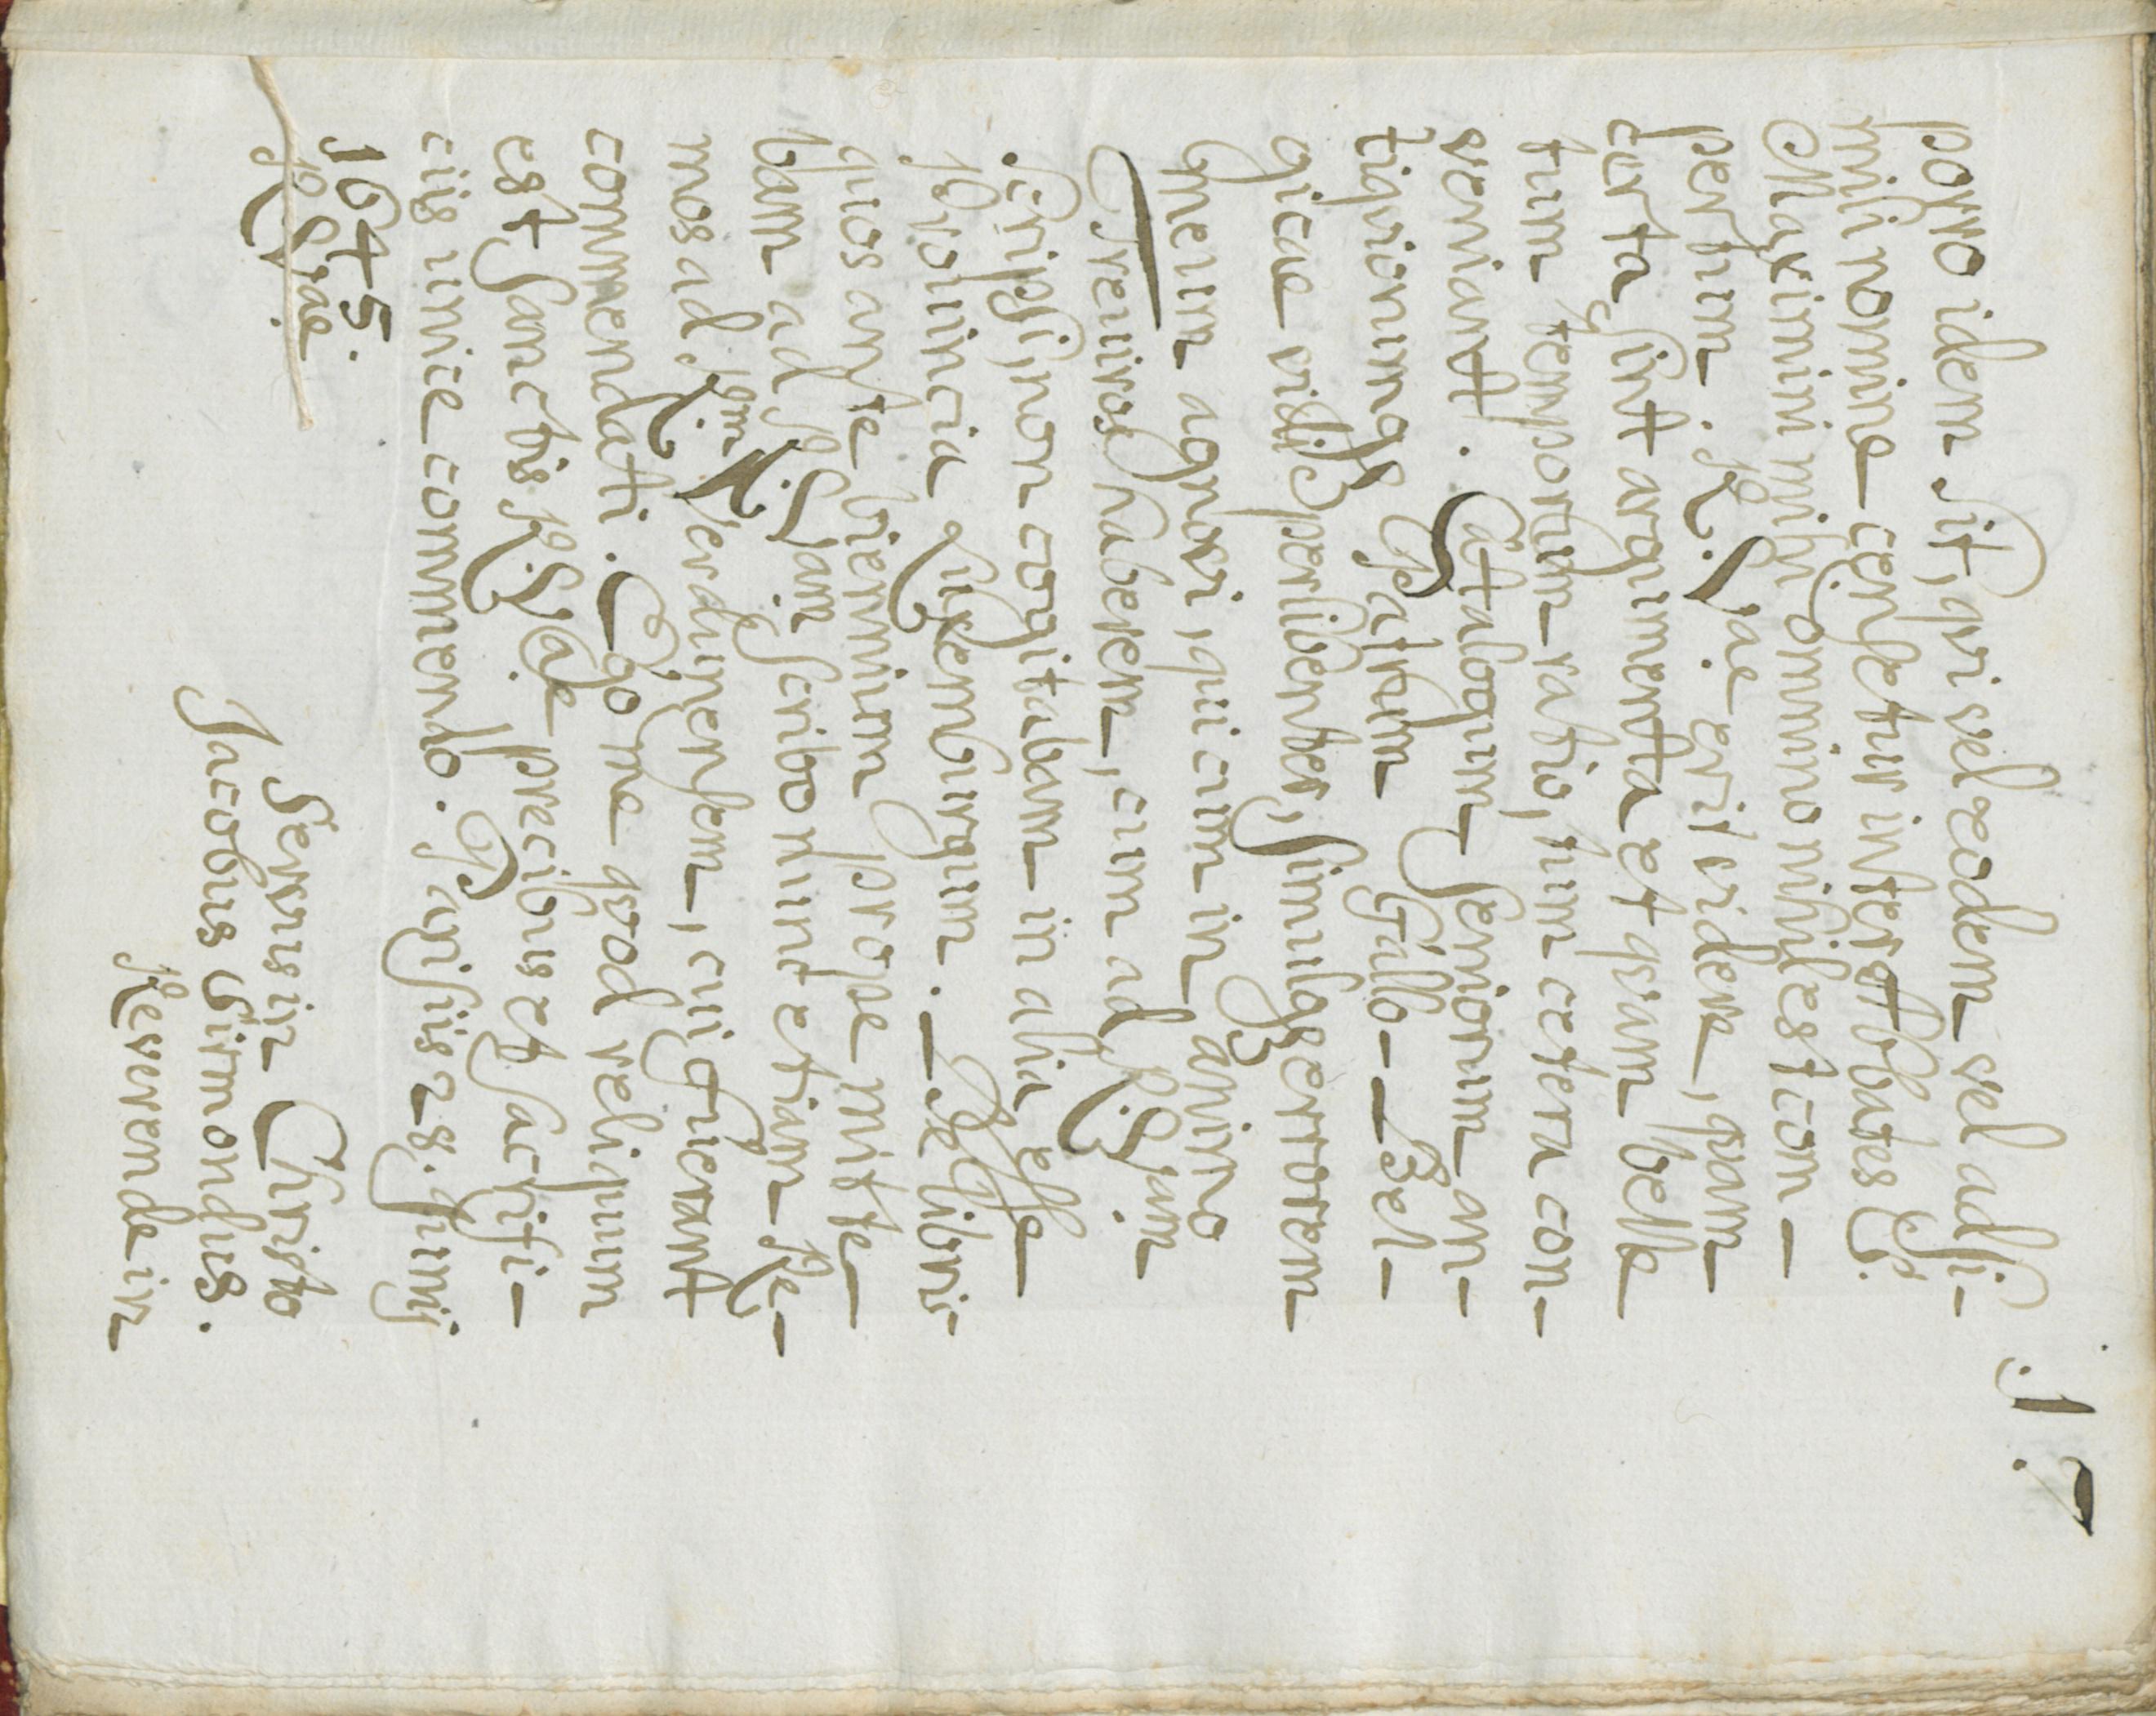 .1.
porro idem sit, qui vel eodem vel adsi-
mili nomine censetur inter Abbates S.
Maximini mihi omnino nihil est com-
pertum. Rae Vrae erit videre, quam
certa sint argumenta et quam belle
tum temporum ratio, tum cetera con-
veniant. Catalogum Seniorum an-
tiqviorumq3 Patrum Gallo-Bel-
gicae vidi perlibenter, simulq3 errorem
meum agnovi, qui cum in animo
Treviros haberem, cum ad R. Vam
scripsi, non cogitabam in alia esse
Provincia Luxemburgum. De libris
quos ante biennium prope mitte-
bam ad R. Vam scribo nunc etiam Re-
mos ad R.m P. Verdunensem, cui fuerant
commendati. Ego me quod reliquum
est sanctis R. Vae precibus et sacrifi-
ciis unice commendo. Parisiis 28. Junij
1645.
Rae Vrae
Servus in Christo
Jacobus Sirmondus.
Reverende in